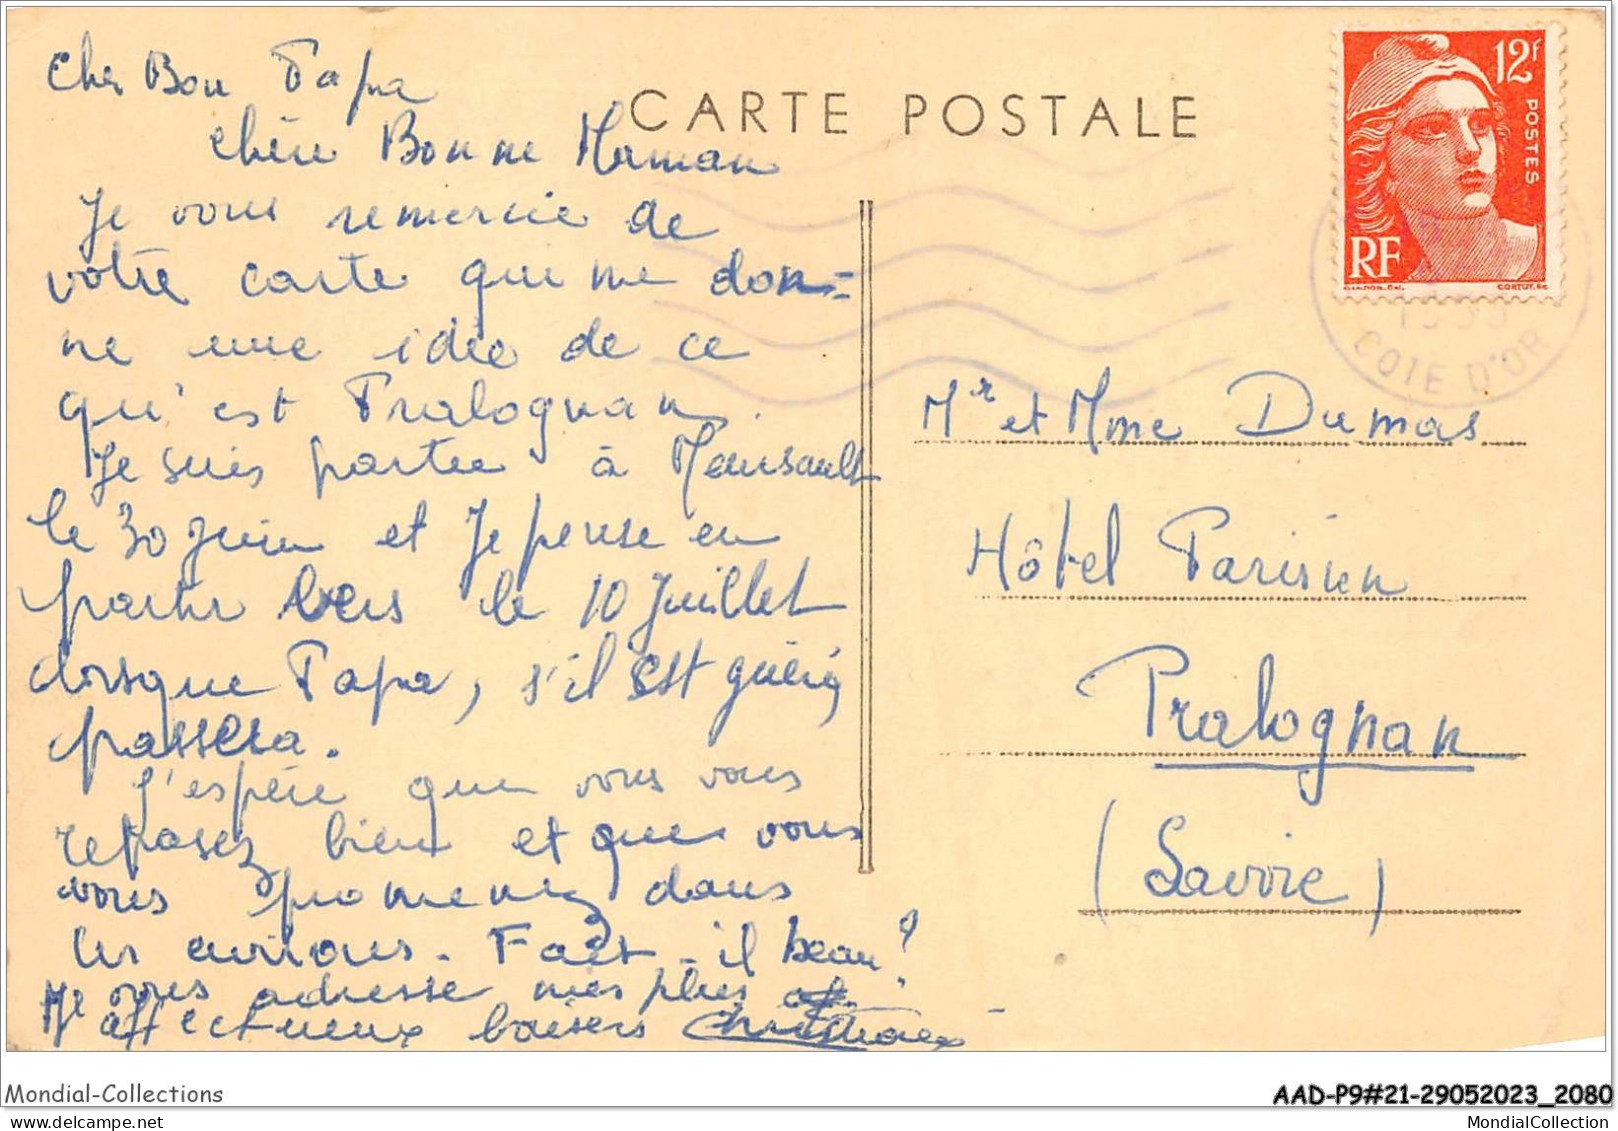 Cher Bon Papa
chère Bonne Maman
Je vous remercie de
votre carte qui me don=
ne une idée de ce
qu'est Pralognan.
Je suis partie à Meursault
le 30 juin et je pense en
partir vers le 10 Juillet
lorsque Papa, s'il est guéri,
passera.
J'espère que vous vous
reposez bien et que vous
vous promenez dans
les environs. Fait-il beau?
Je vous adresse mes plus
affectueux baisers
CARTE POSTALE
12F
POSTES
RF
COTE D'OR
Mr et Mme Dumas
Hôtel Parisien
Pralognan
(Savoie)
Mondial-Collections
AAD-P9#21-29052023_2080
MondialCollection